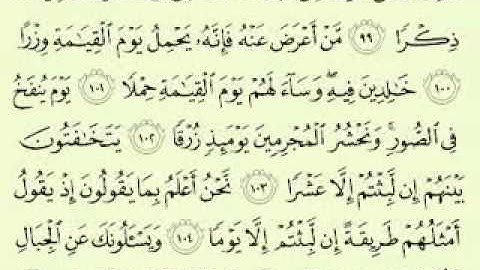 ذِكْرًا ﴿٩٩﴾ مَّنْ أَعْرَضَ عَنْهُ فَإِنَّهُۥ يَحْمِلُ يَوْمَ ٱلْقِيَٰمَةِ وِزْرًا
﴿١٠٠﴾ خَٰلِدِينَ فِيهِ ۖ وَسَآءَ لَهُمْ يَوْمَ ٱلْقِيَٰمَةِ حِمْلًا ﴿١٠١﴾ يَوْمَ يُنفَخُ
فِى ٱلصُّورِ ۚ وَنَحْشُرُ ٱلْمُجْرِمِينَ يَوْمَئِذٍ زُرْقًا ﴿١٠٢﴾ يَتَخَٰفَتُونَ
بَيْنَهُمْ إِن لَّبِثْتُمْ إِلَّا عَشْرًا ﴿١٠٣﴾ نَّحْنُ أَعْلَمُ بِمَا يَقُولُونَ إِذْ يَقُولُ
أَمْثَلُهُمْ طَرِيقَةً إِن لَّبِثْتُمْ إِلَّا يَوْمًا ﴿١٠٤﴾ وَيَسْـَٔلُونَكَ عَنِ ٱلْجِبَالِ